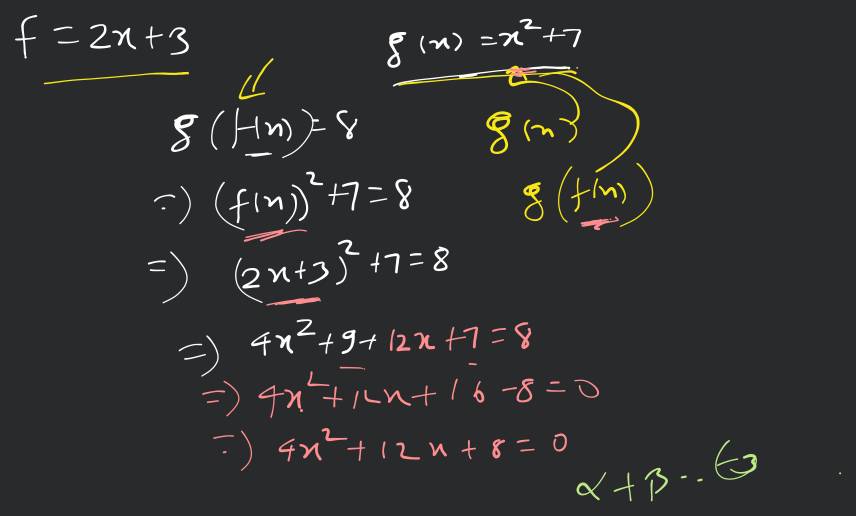 f = 2x+3
g(x) = x²+7
g(f(x)) = 8
g(x)
=) (f(x))²+7=8
g(f(x))
=) (2x+3)²+7=8
=) 4x²+9+12x+7=8
=) 4x²+12x+16-8=0
=) 4x²+12x+8=0
α+β.. (-3